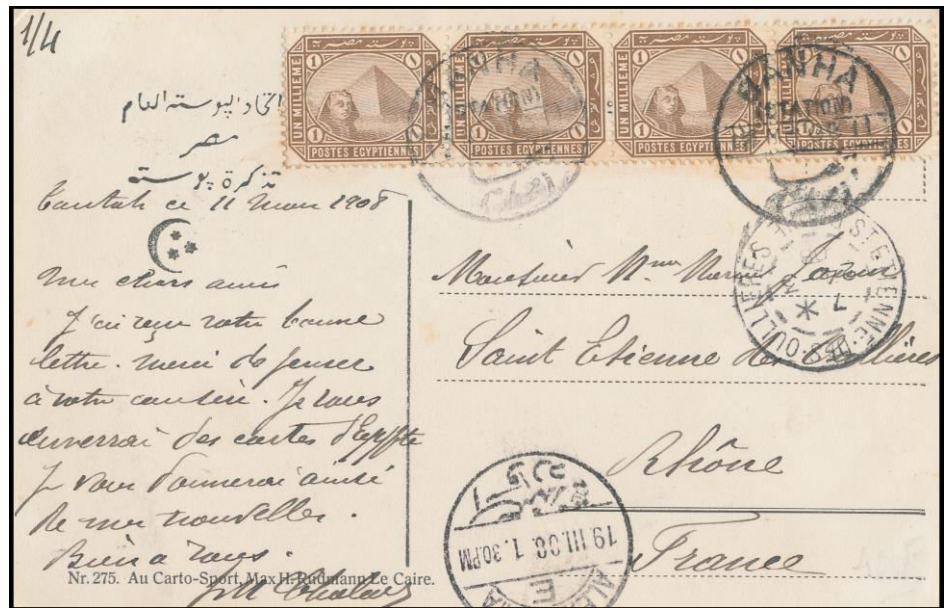 1/4
UN MILLIEME
1
POSTES EGYPTIENNES
UN MILLIEME
1
POSTES EGYPTIENNES
UN MILLIEME
1
POSTES EGYPTIENNES
1
POSTES EGYPTIENNES
BANHA
(STATION)
BANHA
(STATION)
اتحاد البوسته العام
مصر
تذكرة بوسته
Tantah ce 11 Mars 1908
Mes chers amis
J'ai reçu votre bonne
lettre. Merci de penser
à votre cousin. Je vous
enverrai des cartes d'Egypte
Je vous donnerai ainsi
de mes nouvelles.
Bien à vous.
Monsieur
Saint Etienne des Oullières
Rhône
France
ST ETIENNE-DES-OULLIERES
19.III.08.1.30.PM
Nr. 275. Au Carto-Sport, Max H. Rudmann Le Caire.